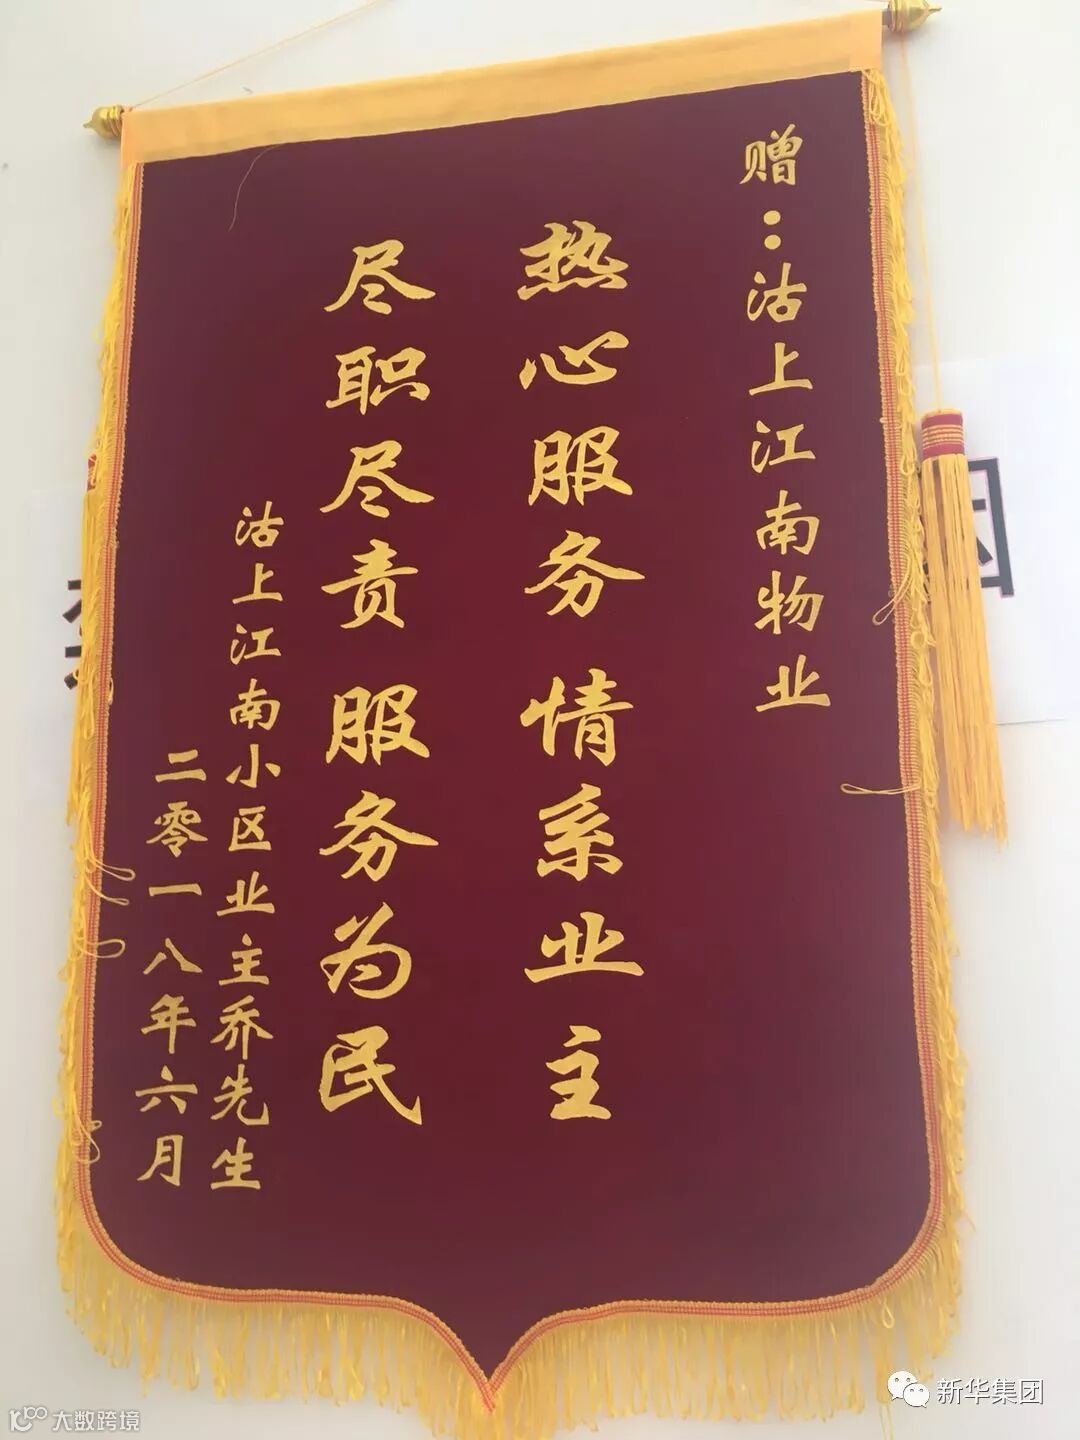 赠：沽上江南物业
热心服务 情系业主
尽职尽责 服务为民
沽上江南小区业主乔先生
二零一八年六月
新华集团
大数跨境